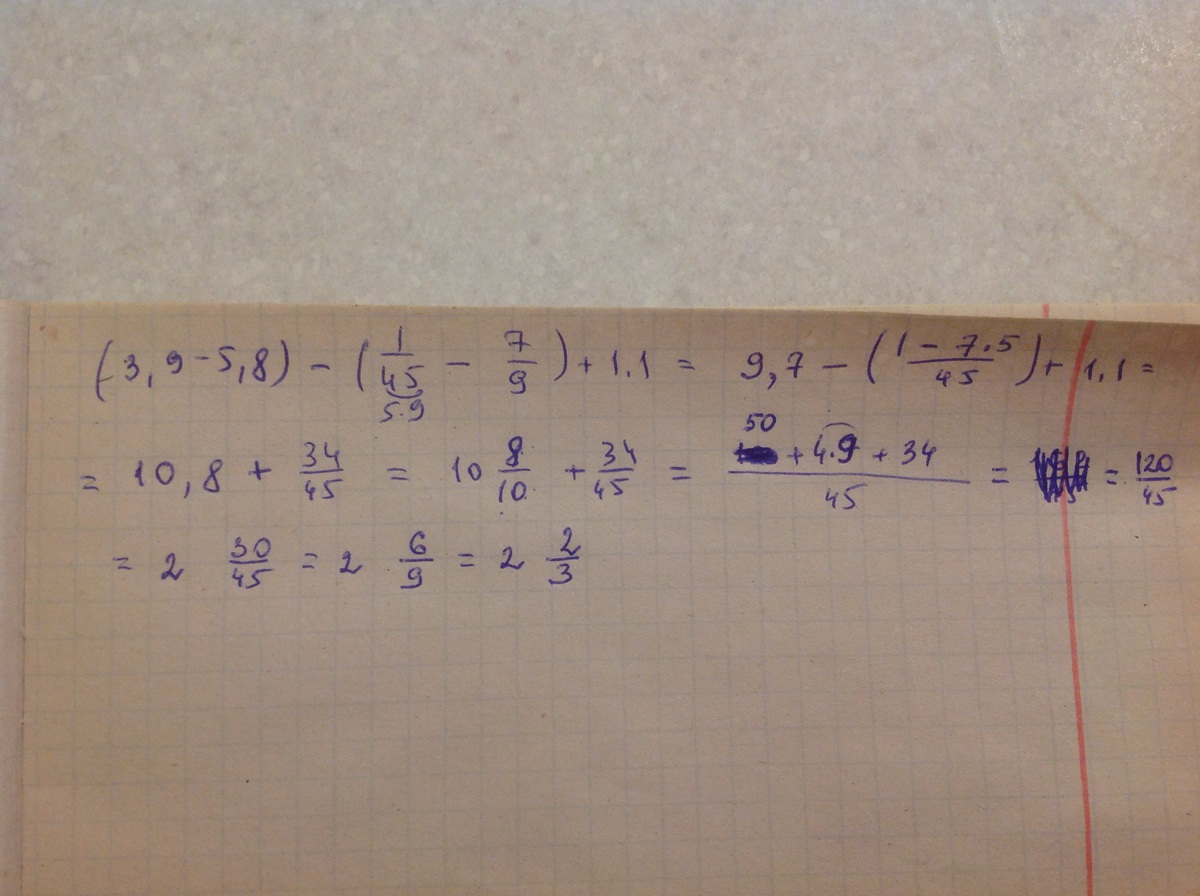 (-3,9-5,8) - (1/45 - 7/9) + 1.1 = 9,7 - (1 - 7.5/45) + 1,1 =
5.9
50
= 10,8 + 34/45 = 10 8/10 + 34/45 = + 4.9 + 34/45 = = 120/45
= 2 30/45 = 2 6/9 = 2 2/3